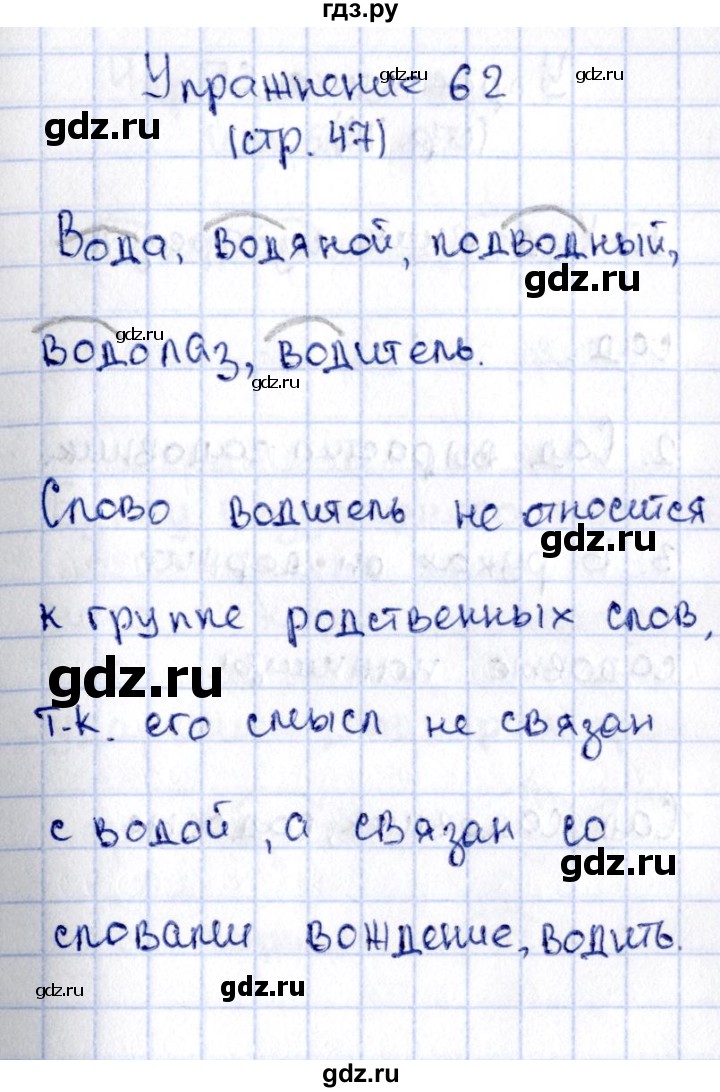 гдз.ру
Упражнение 62
gdz.ru
gdz.ru
(стр. 47)
Вода, водяной, подводный,
gdz.ru
gdz.ru
водолаз, водитель.
gdz.ru
Слово водитель не относится
gdz.ru
к группе родственных слов,
gdz.ru
т.к. его смысл не связан
с водой, а связан со
gdz.ru
словами вождение, водить.
gdz.ru
gdz.ru
gdz.ru